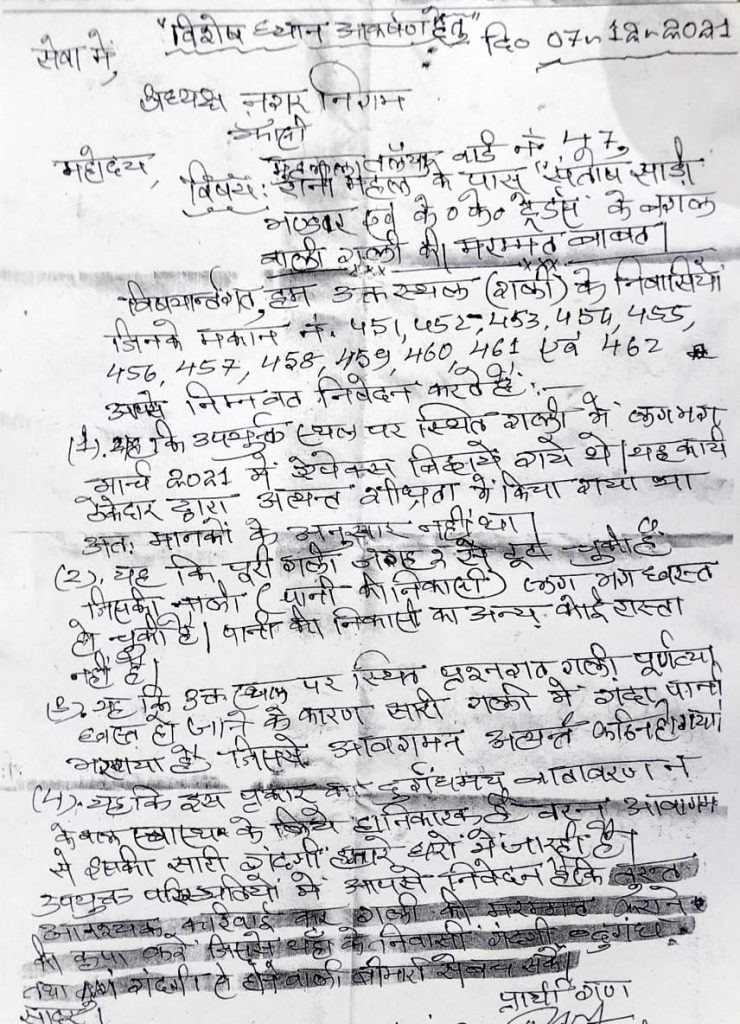 "विशेष ध्यान आकर्षण हेतु" दि० 07-12-2021
सेवा में,
अध्यक्ष नगर निगम
झाँसी
महोदय,
वार्ड नं० 47,
विषय: रानी महल के पास संतोष साड़ी
भण्डार एवं के०के० ट्रेडर्स के बगल
वाली गली की मरम्मत बाबत।
विषयान्तर्गत हम उक्त स्थल (गली) के निवासियों
जिनके मकान नं. 451, 452, 453, 454, 455,
456, 457, 458, 459, 460, 461 एवं 462
आपसे निम्नवत निवेदन करते हैं :—
(1). यह कि उपर्युक्त स्थल पर स्थित गली में लगभग
मार्च 2021 में पेपेक्स बिछाये गये थे। यह कार्य
ठेकेदार द्वारा अत्यन्त शीघ्रता में किया गया था
अतः मानकों के अनुसार नहीं था।
(2). यह कि पूरी गली जगह 2 से टूट चुकी है
जिसकी नाली (पानी की निकासी) लग भग ध्वस्त
हो चुकी है। पानी की निकासी का अन्य कोई रास्ता
नहीं है।
यह कि उक्त स्थल पर स्थित प्रश्नगत गली पूर्णतया
ध्वस्त हो जाने के कारण सारी गली में गंदा पानी
भर गया है जिससे आवागमन अत्यन्त कठिन हो गया
(4). यह कि इस प्रकार का दुर्गंधमय वातावरण न
केवल स्वास्थ्य के लिये हानिकारक है वरन आवागम
से इसकी सारी गंदगी हमारे घरों में जा रही है।
उपयुक्त परिस्थितियों में आपसे निवेदन है कि तुरन्त
आवश्यक कार्रवाई कर गली की मरम्मत कराने
की कृपा करें जिससे यहाँ के निवासी गंदगी बदुगंध
तथा गंदगी से होने वाली बीमारी से बच सकें।
सादर। प्रार्थी गण